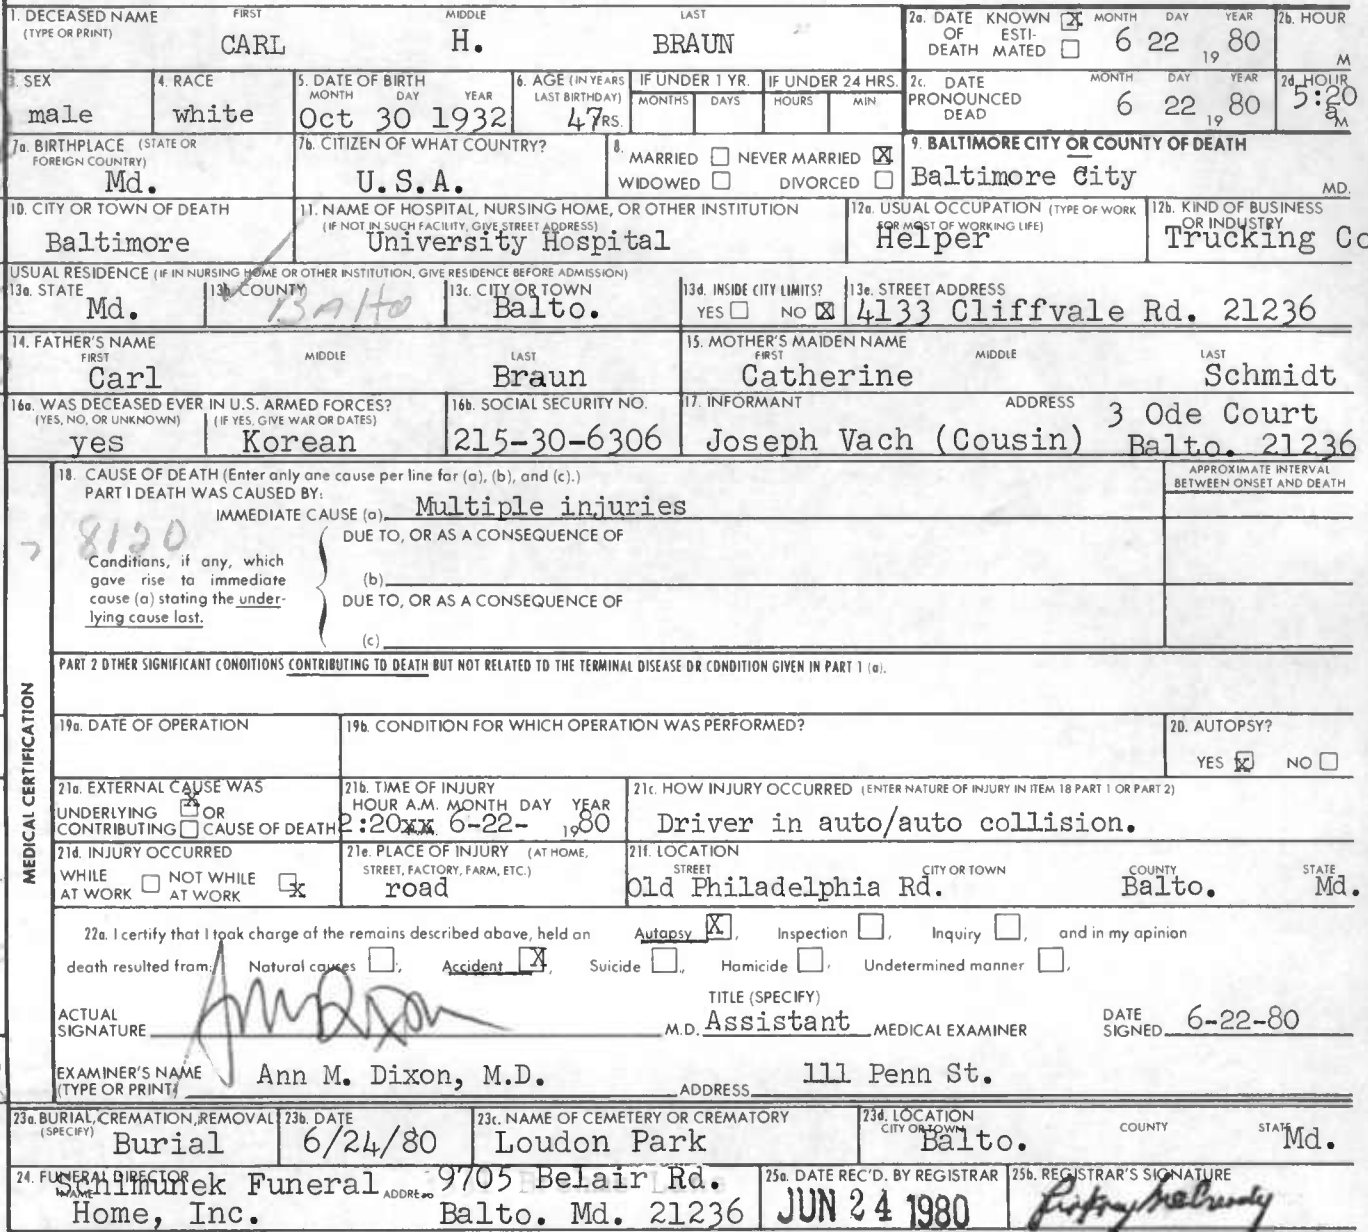 1. DECEASED NAME FIRST MIDDLE LAST
(TYPE OR PRINT)
CARL H. BRAUN
2a. DATE KNOWN X MONTH DAY YEAR
OF ESTI-
DEATH MATED
6 22 19 80
2b. HOUR
M
3. SEX
male
4. RACE
white
5. DATE OF BIRTH
MONTH DAY YEAR
Oct 30 1932
6. AGE (IN YEARS
LAST BIRTHDAY)
47 RS.
IF UNDER 1 YR.
MONTHS DAYS
IF UNDER 24 HRS.
HOURS MIN.
2c. DATE MONTH DAY YEAR
PRONOUNCED
DEAD
6 22 19 80
2d. HOUR
5:20
a M
7a. BIRTHPLACE (STATE OR
FOREIGN COUNTRY)
Md.
7b. CITIZEN OF WHAT COUNTRY?
U.S.A.
8.
MARRIED NEVER MARRIED X
WIDOWED DIVORCED
9. BALTIMORE CITY OR COUNTY OF DEATH
Baltimore City
MD.
10. CITY OR TOWN OF DEATH
Baltimore
11. NAME OF HOSPITAL, NURSING HOME, OR OTHER INSTITUTION
(IF NOT IN SUCH FACILITY, GIVE STREET ADDRESS)
University Hospital
12a. USUAL OCCUPATION (TYPE OF WORK
FOR MOST OF WORKING LIFE)
Helper
12b. KIND OF BUSINESS
OR INDUSTRY
Trucking Co
USUAL RESIDENCE (IF IN NURSING HOME OR OTHER INSTITUTION, GIVE RESIDENCE BEFORE ADMISSION)
13a. STATE
Md.
13b. COUNTY
BAlto
13c. CITY OR TOWN
Balto.
13d. INSIDE CITY LIMITS?
YES NO X
13e. STREET ADDRESS
4133 Cliffvale Rd. 21236
14. FATHER'S NAME
FIRST MIDDLE LAST
Carl Braun
15. MOTHER'S MAIDEN NAME
FIRST MIDDLE LAST
Catherine Schmidt
16a. WAS DECEASED EVER IN U.S. ARMED FORCES?
(YES, NO, OR UNKNOWN) (IF YES, GIVE WAR OR DATES)
yes Korean
16b. SOCIAL SECURITY NO.
215-30-6306
17. INFORMANT ADDRESS
Joseph Vach (Cousin)
3 Ode Court
Balto. 21236
18. CAUSE OF DEATH (Enter only one cause per line for (a), (b), and (c).)
PART I DEATH WAS CAUSED BY:
IMMEDIATE CAUSE (a) Multiple injuries
APPROXIMATE INTERVAL
BETWEEN ONSET AND DEATH
8120
Conditions, if any, which
gave rise to immediate
cause (a) stating the under-
lying cause last.
DUE TO, OR AS A CONSEQUENCE OF
(b)
DUE TO, OR AS A CONSEQUENCE OF
(c)
PART 2 OTHER SIGNIFICANT CONDITIONS CONTRIBUTING TO DEATH BUT NOT RELATED TO THE TERMINAL DISEASE OR CONDITION GIVEN IN PART 1 (a).
MEDICAL CERTIFICATION
19a. DATE OF OPERATION
19b. CONDITION FOR WHICH OPERATION WAS PERFORMED?
20. AUTOPSY?
YES X NO
21a. EXTERNAL CAUSE WAS
UNDERLYING X OR
CONTRIBUTING CAUSE OF DEATH
21b. TIME OF INJURY
HOUR A.M. MONTH DAY YEAR
2:20xx 6-22- 19 80
21c. HOW INJURY OCCURRED (ENTER NATURE OF INJURY IN ITEM 18 PART 1 OR PART 2)
Driver in auto/auto collision.
21d. INJURY OCCURRED
WHILE NOT WHILE
AT WORK AT WORK X
21e. PLACE OF INJURY (AT HOME,
STREET, FACTORY, FARM, ETC.)
road
21f. LOCATION
STREET CITY OR TOWN COUNTY STATE
Old Philadelphia Rd. Balto. Md.
22a. I certify that I took charge of the remains described above, held an Autopsy X, Inspection , Inquiry , and in my opinion
death resulted from: Natural causes , Accident X, Suicide , Homicide , Undetermined manner ,
ACTUAL
SIGNATURE
M.D.
TITLE (SPECIFY)
Assistant MEDICAL EXAMINER
DATE
SIGNED 6-22-80
EXAMINER'S NAME
(TYPE OR PRINT)
Ann M. Dixon, M.D.
ADDRESS 111 Penn St.
23a. BURIAL, CREMATION, REMOVAL
(SPECIFY)
Burial
23b. DATE
6/24/80
23c. NAME OF CEMETERY OR CREMATORY
Loudon Park
23d. LOCATION
CITY OR TOWN COUNTY STATE
Balto. Md.
24. FUNERAL DIRECTOR
NAME
Schimunek Funeral
Home, Inc.
ADDRESS
9705 Belair Rd.
Balto. Md. 21236
25a. DATE REC'D. BY REGISTRAR
JUN 24 1980
25b. REGISTRAR'S SIGNATURE